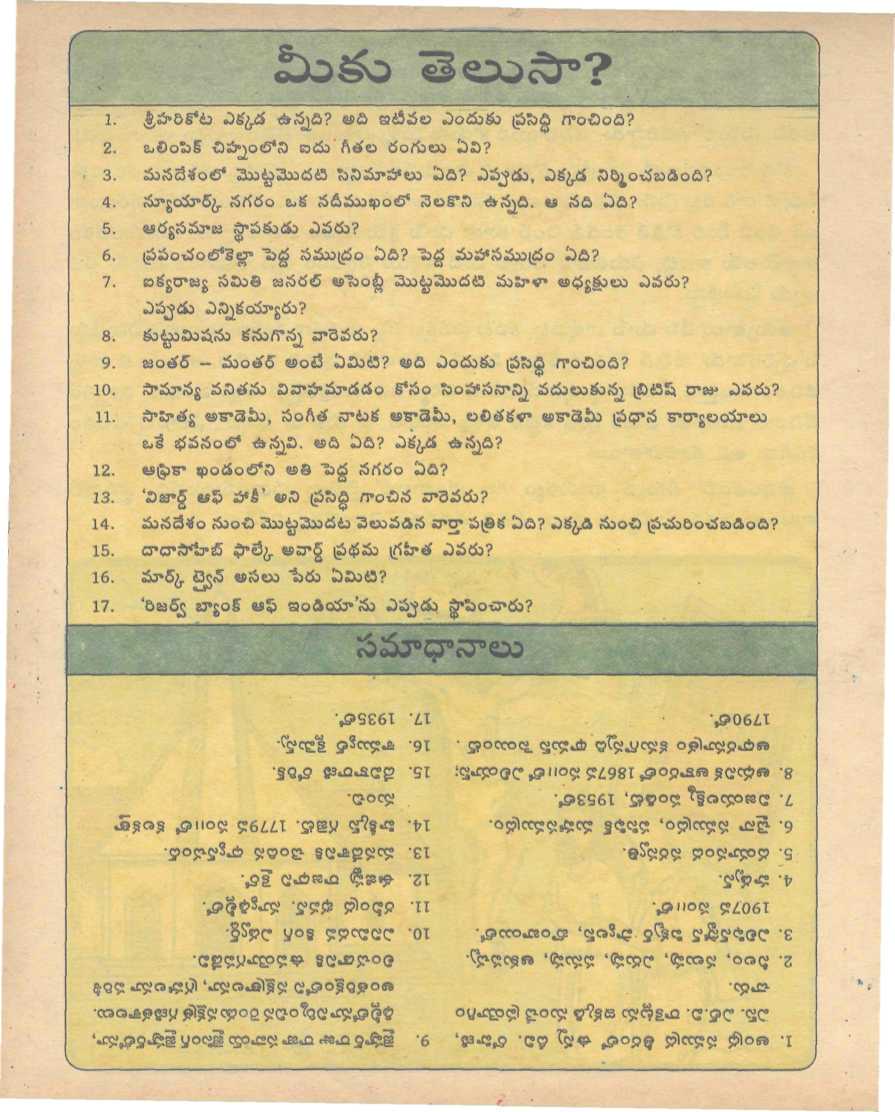 మీకు తెలుసా?
1. శ్రీహరికోట ఎక్కడ ఉన్నది? అది ఇటీవల ఎందుకు ప్రసిద్ధి గాంచింది?
2. ఒలింపిక్ చిహ్నంలోని ఐదు గీతల రంగులు ఏవి?
3. మనదేశంలో మొట్టమొదటి సినిమాహాలు ఏది? ఎప్పుడు, ఎక్కడ నిర్మించబడింది?
4. న్యూయార్క్ నగరం ఒక నదీముఖంలో నెలకొని ఉన్నది. ఆ నది ఏది?
5. ఆర్యసమాజ స్థాపకుడు ఎవరు?
6. ప్రపంచంలోకెల్లా పెద్ద సముద్రం ఏది? పెద్ద మహాసముద్రం ఏది?
7. ఐక్యరాజ్య సమితి జనరల్ అసెంబ్లీ మొట్టమొదటి మహిళా అధ్యక్షులు ఎవరు?
ఎప్పుడు ఎన్నికయ్యారు?
8. కుట్టుమిషను కనుగొన్న వారెవరు?
9. జంతర్ – మంతర్ అంటే ఏమిటి? అది ఎందుకు ప్రసిద్ధి గాంచింది?
10. సామాన్య వనితను వివాహమాడడం కోసం సింహాసనాన్ని వదులుకున్న బ్రిటిష్ రాజు ఎవరు?
11. సాహిత్య అకాడెమీ, సంగీత నాటక అకాడెమీ, లలితకళా అకాడెమీ ప్రధాన కార్యాలయాలు
ఒకే భవనంలో ఉన్నవి. అది ఏది? ఎక్కడ ఉన్నది?
12. ఆఫ్రికా ఖండంలోని అతి పెద్ద నగరం ఏది?
13. 'విజార్డ్ ఆఫ్ హాకీ' అని ప్రసిద్ధి గాంచిన వారెవరు?
14. మనదేశం నుంచి మొట్టమొదట వెలువడిన వార్తా పత్రిక ఏది? ఎక్కడి నుంచి ప్రచురించబడింది?
15. దాదాసాహేబ్ ఫాల్కే అవార్డ్ ప్రథమ గ్రహీత ఎవరు?
16. మార్క్ ట్వైన్ అసలు పేరు ఏమిటి?
17. 'రిజర్వ్ బ్యాంక్ ఆఫ్ ఇండియా'ను ఎప్పుడు స్థాపించారు?
సమాధానాలు
1. ఆంధ్ర సముద్ర తీరంలో ఉన్న దీవి. రోహిణి,
ఎస్. ఎల్.వి. రాకెట్లను ఇక్కడి నుంచే ప్రయోగిం
చారు.
2. నీలం, నలుపు, ఎరుపు, పసుపు, ఆకుపచ్చ.
3. ఎల్ఫిన్‌స్టోన్ పిక్చర్ ప్యాలెస్, బొంబాయిలో,
1907వ సం॥లో.
4. హడ్సన్.
5. దయానంద సరస్వతి.
6. చైనా సముద్రం, పసిఫిక్ మహాసముద్రం.
7. విజయలక్ష్మి పండిట్, 1953లో.
8. ఆధునిక ఆకారంలో 1867వ సం॥లో ఎలియాస్;
ఆధారసూత్రం కనుగొన్నది థామస్ సెయింట్ .
1790లో.
9. జైపూర్ రాజు రాజా సవాయి జైసింగ్ జైపూర్‌లోనూ,
ఢిల్లీలోనూ నిర్మించిన రెండు నక్షత్ర గణితశాలలు.
అంతరిక్షంలోని నక్షత్రాలనూ, గ్రహాలనూ పరిశీ
లించడానికి ఉపయోగపడేవి.
10. ఎనిమిదవ కింగ్ ఎడ్వర్డ్.
11. రవీంద్ర భవన్. న్యూఢిల్లీలో.
12. ఈజిప్ట్ రాజధాని కైరో.
13. మనదేశానికి చెందిన ధ్యాన్‌చంద్.
14. హిక్కీస్ గెజిట్. 1779వ సం॥లో కలకత్తా
నుంచి.
15. దేవికారాణి రోరిక్.
16. శామ్యుల్ క్లెమెన్స్.
17. 1935లో.